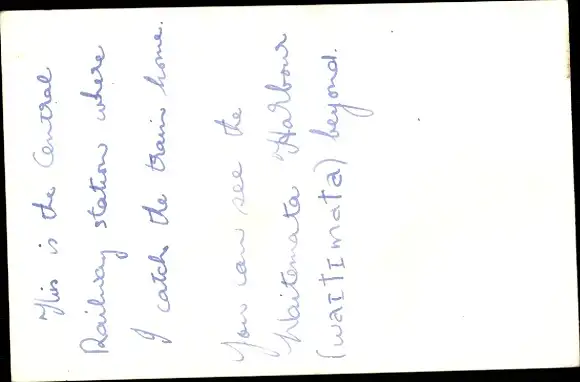 This is the Central
Railway station where
I catch the train home.
You can see the
Waitemata Harbour
(WAITIMATA) beyond.